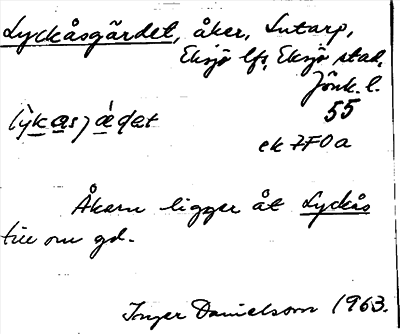 Lyckåsgärdet, åker, Lutarp,
Eksjö lfs, Eksjö stad,
Jönk. l.
55
ek 7F0a
Åkern ligger åt Lyckås
till om gd.
Inger Danielsson 1963.